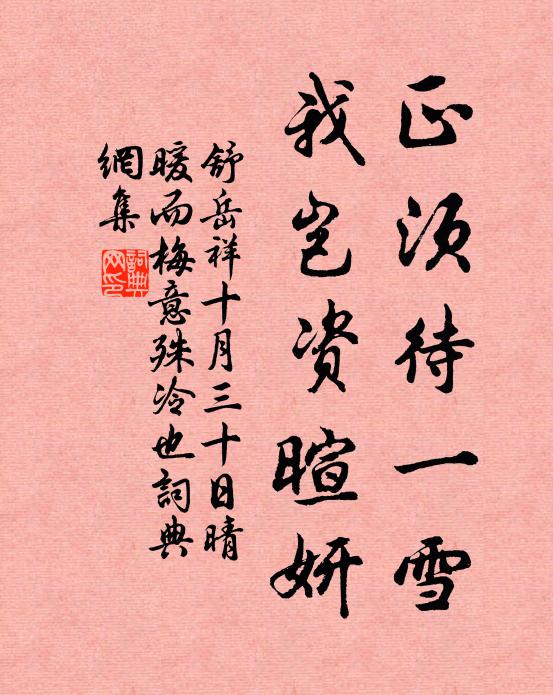 正须待一雪
我岂资暄妍
舒岳祥十月三十日晴
暖而梅意殊冷也詞典
網集
詞典网印